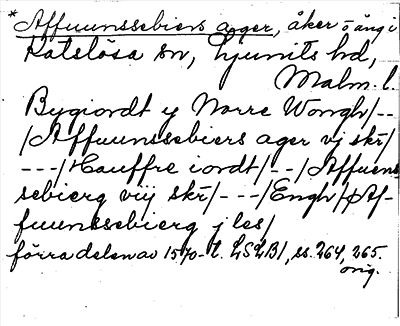 *Affuunssebiers ager, åker o äng i
Katslösa sn, Ljunits hd,
Malm. l.
Bygiordt y Norre Wongh/--
/Affuunssebiers ager vj skr/
---/Hauffre iordt/--/Affuens
sebierg viij skr/---/Engh/Af-
fuunssebierg j les/
förra delen av 1570-t. LSLBI, ss. 264, 265.
orig.